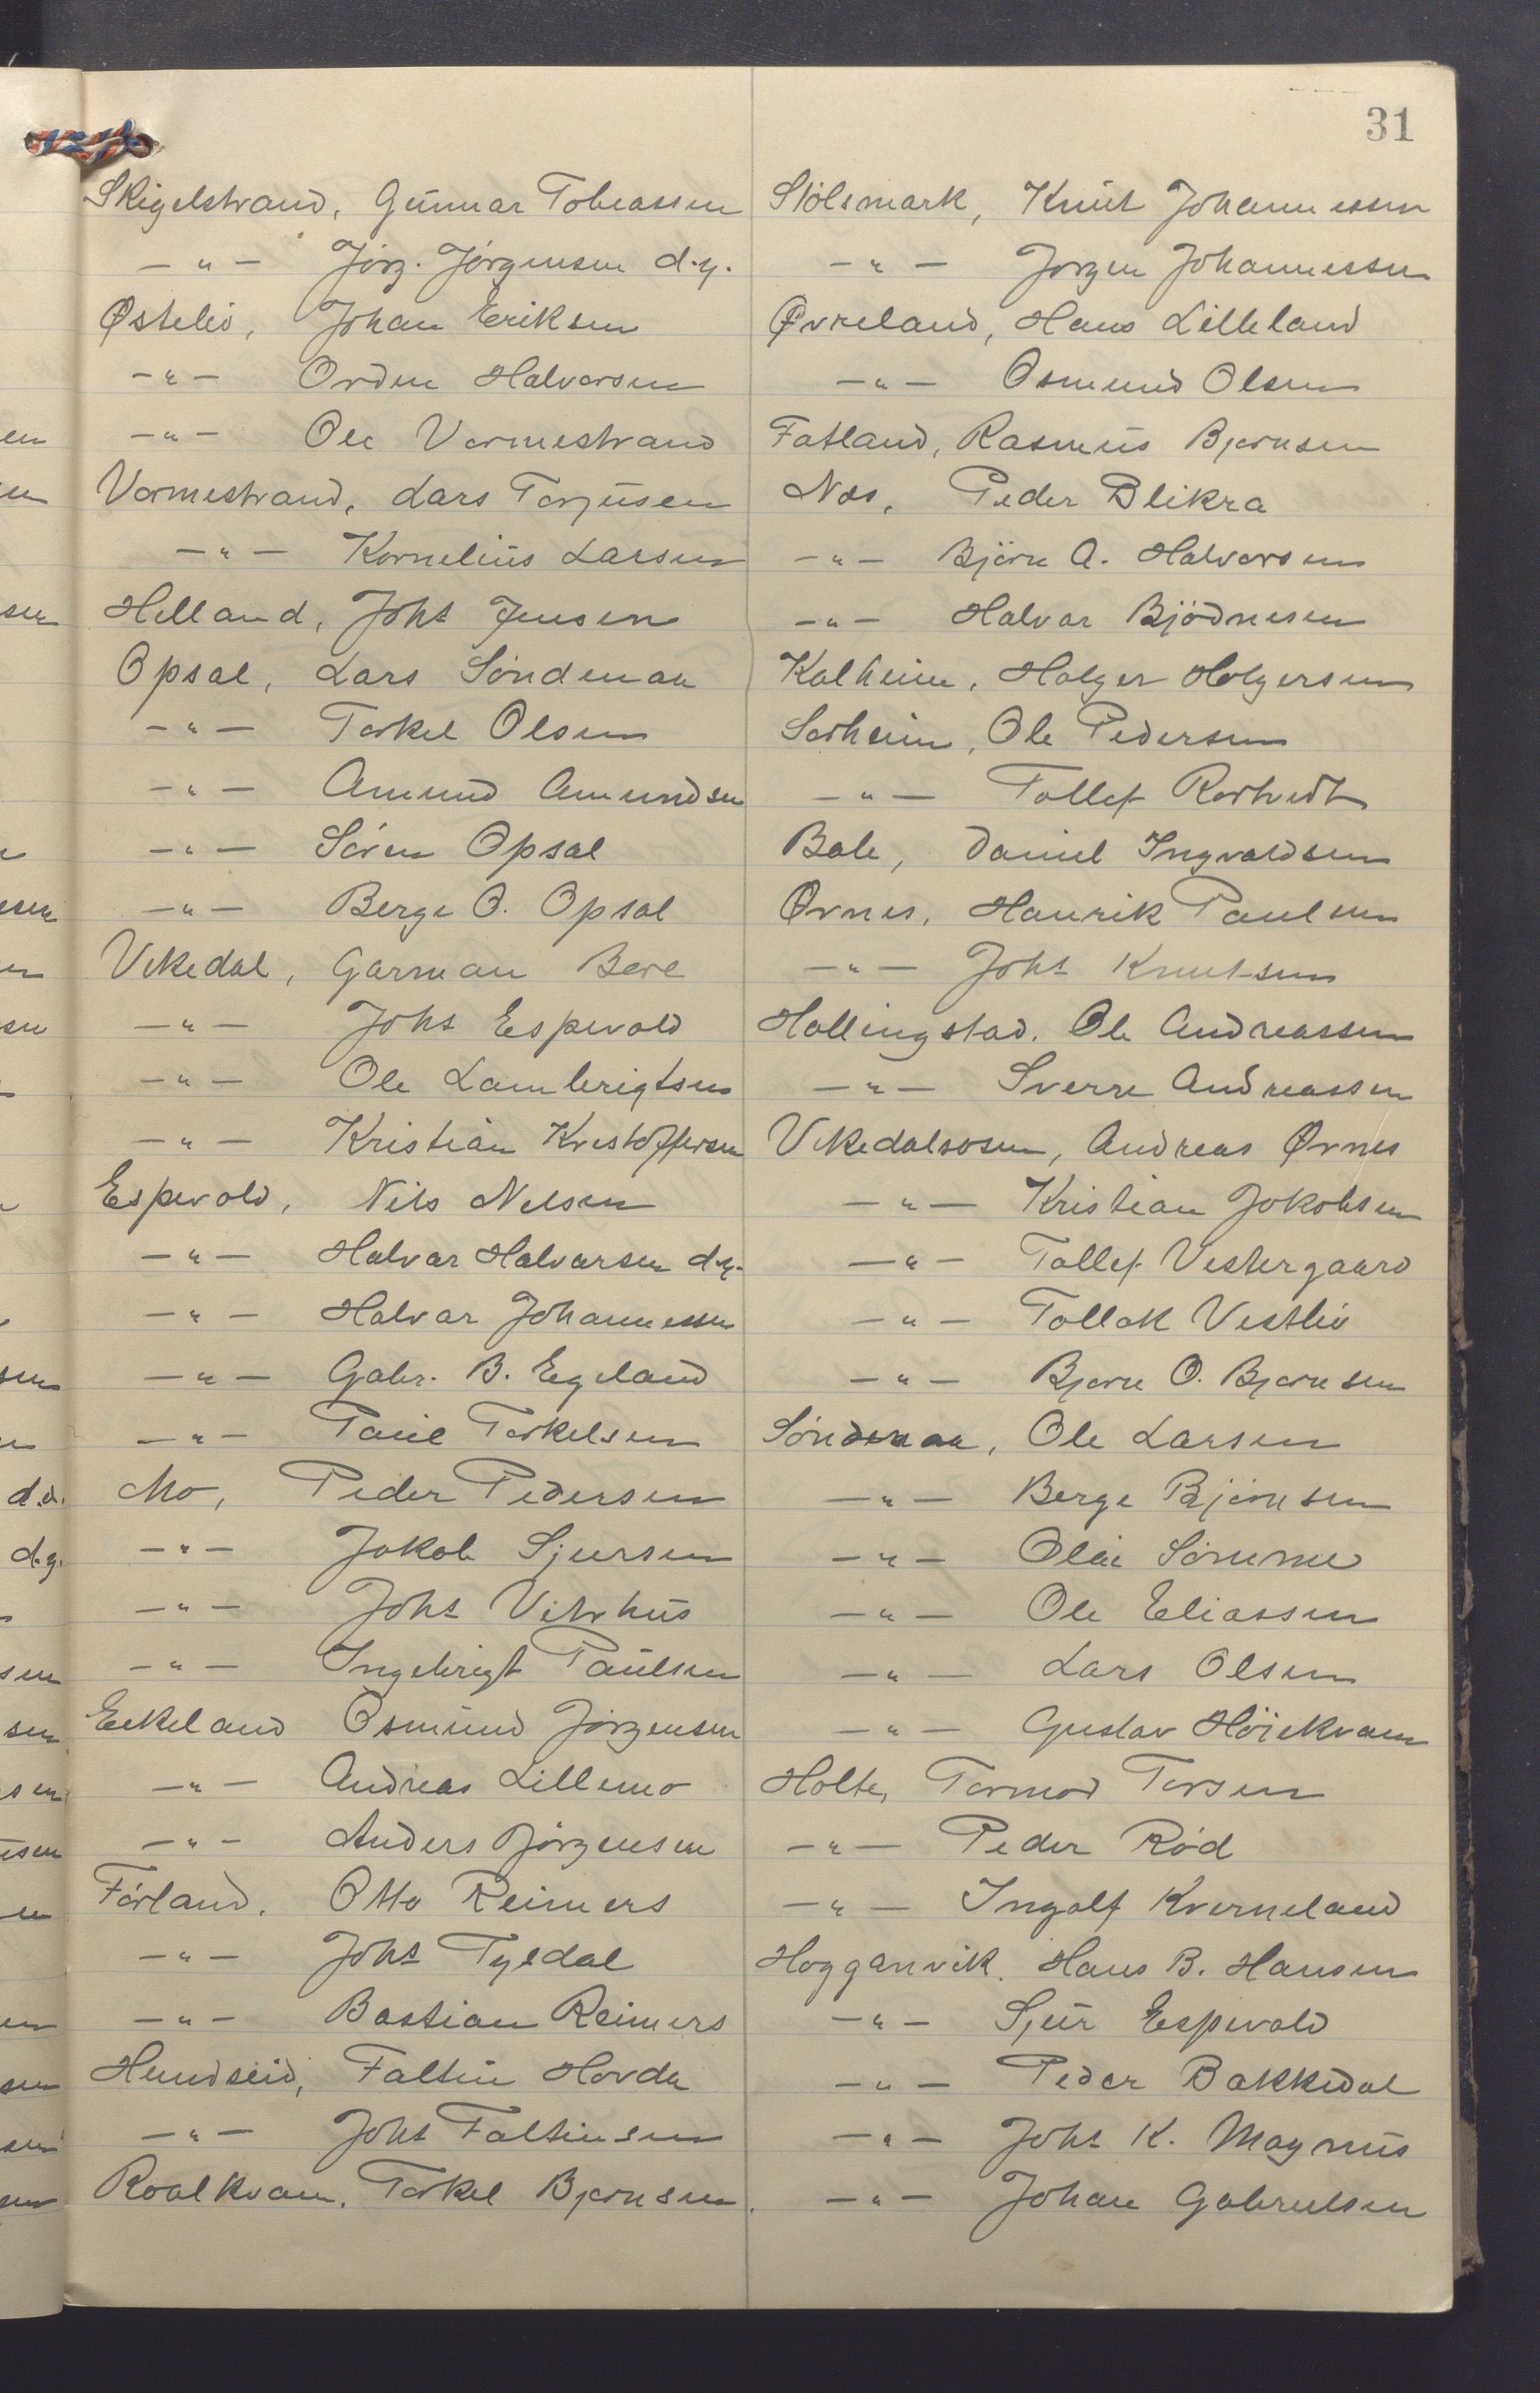 31
Skigelstrand, Gunnar Tobiassen
-"- Jørg. Jørgensen d.y.
Østeliv, Johan Eriksen
-"- Orden Halvorsen
-"- Ole Vormestrand
Vormestrand, Lars Torjusen
-"- Kornelius Larsen
Helland, Johs Jensen
Opsal, Lars Söndenaa
-"- Torkel Olsen
-"- Amund Amundsen
-"- Sören Opsal
-"- Berge O. Opsal
Vikedal, Garman Bere
-"- Johs Espevold
-"- Ole Lambrigtsen
-"- Kristian Kristoffersen
Espevold, Nils Nilsen
-"- Halvar Halvarsen d.y.
-"- Halvar Johannessen
-"- Gabr. B. Egeland
-"- Paul Torkelsen
Mo, Peder Pedersen
-"- Jakob Sjursen
-"- Johs Vitrhus
-"- Ingebrigt Paulsen
Eikeland Osmund Jörgensen
-"- Andreas Lillemo
-"- Anders Jörgensen
Förland, Otto Reimers
-"- Johs Tysdal
-"- Bastian Reimers
Hundseid, Faltin Hovda
-"- Johs Faltinsen
Roalkvam, Torkel Bjørnsen.
Stölsmark, Knut Johannessen
-"- Jorgen Johannessen
Øvreland, Hans Lilleland
-"- Osmund Olsen
Fatland, Rasmus Bjørnsen
Nes, Peder Blikra
-"- Björn A. Halvorsen
-"- Halvar Bjödnesen
Kalheim, Holger Holgersen
Sørheim, Ole Pedersen
-"- Tollef Rørtvedt
Bale, Daniel Ingvaldsen
Ørnes, Haurik Paulsen
-"- Johs Knutsen
Hallingstad, Ole Andreassen
-"- Sverre Andreassen
Vikedalsosen, Andreas Ørnes
-"- Kristian Jakobsen
-"- Tollef Vestergaard
-"- Tollak Vestliv
-"- Bjørn O. Bjørnsen
Söndenaa, Ole Larsen
-"- Berge Björnsen
-"- Olai Sömme
-"- Ole Eliassen
-"- Lars Olsen
-"- Gustav Höiekvam
Holte, Tormod Torsen
-"- Peder Röd
-"- Ingolf Kverneland
Hogganvik, Hans B. Hansen
-"- Sjur Espevold
-"- Peder Bakkedal
-"- Johs K. Magnus
-"- Johan Gabrielsen